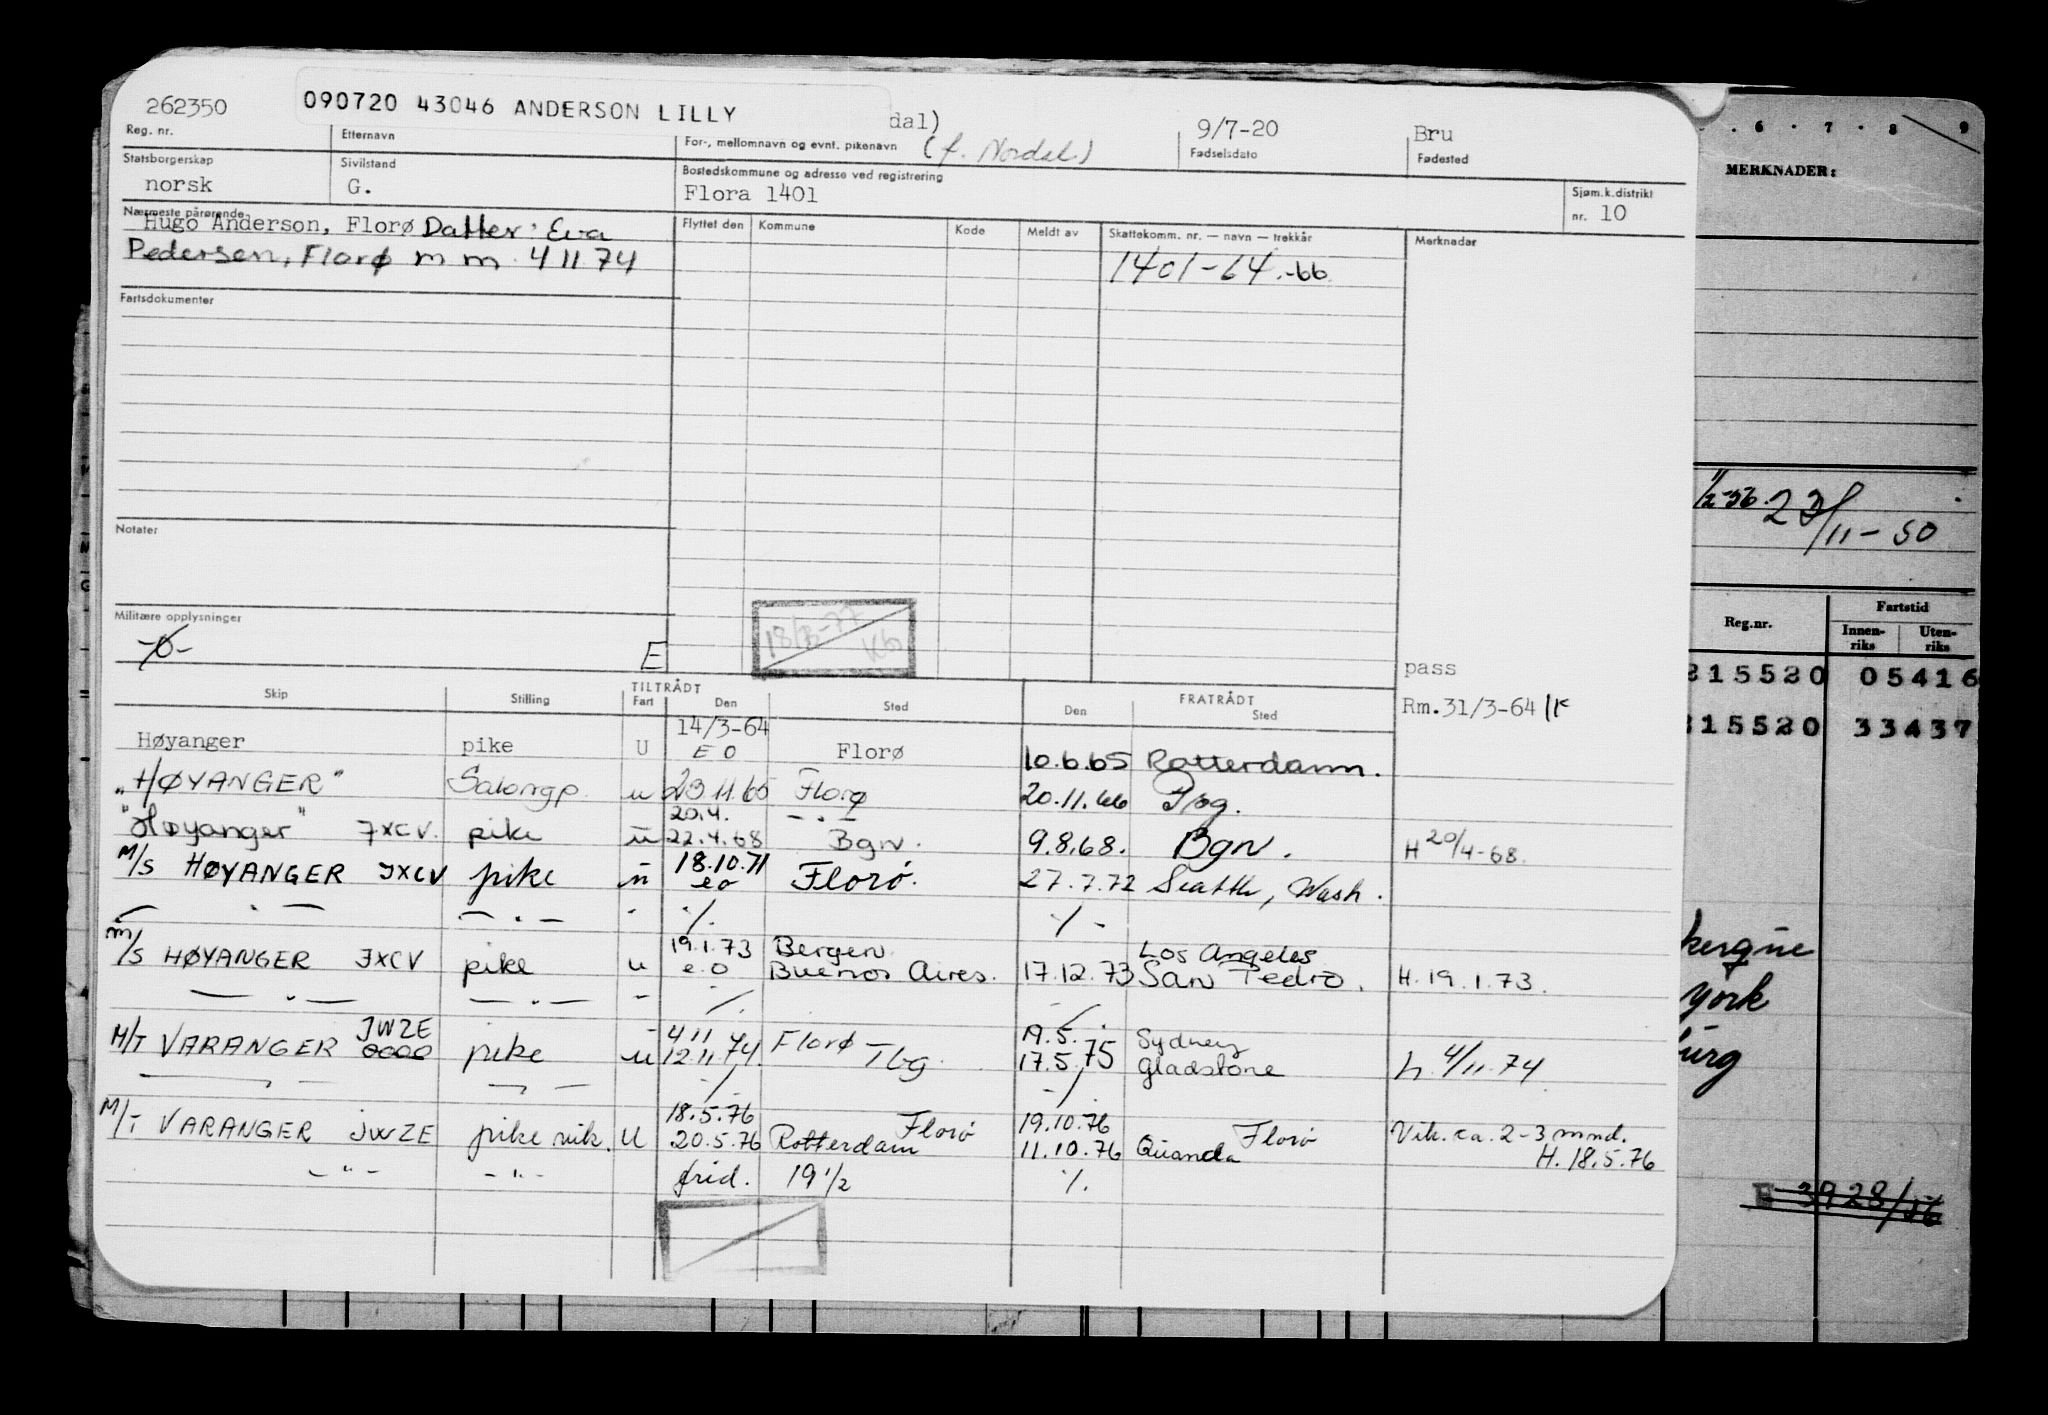 262350 090720 43046 ANDERSON LILLY dal) 9/7-20 Bru
Reg. nr. Etternavn For-, mellomnavn og evnt. pikenavn (f. Nordal) Fødselsdato Fødested
Statsborgerskap Sivilstand Bostedskommune og adresse ved registrering Sjøm.k.distrikt
norsk G. Flora 1401 nr. 10
Nærmeste pårørende Flyttet den Kommune Kode Meldt av Skattekomm. nr. — navn — trekkår Merknader
Hugo Anderson, Florø Datter: Eva
Pedersen, Florø m m 4 11 74 1401-64.-66
Fartsdokumenter
Notater
18/3-77 Kb
Militære opplysninger
-0- E
pass
Rm.31/3-64
TILTRÅDT FRATRÅDT
Skip Stilling Fart Den Sted Den Sted
14/3-64
Høyanger pike U E O Florø 10.6.65 Rotterdam.
"HØYANGER" Salongp. u 23 11.65 Florø 20.11.66
20.4. - . -
"Høyanger" JXCV. pike u 22.4.68 Bgn. 9.8.68. Bgn. H 20/4-68.
18.10.71
M/S HØYANGER JXCV pike u eo Florø. 27.7.72 Seattle, Wash.
— . — — . — - ./. ./. -
19.1.73 Bergen Los Angeles
m/s HØYANGER JXCV pike u e.o Buenos Aires. 17.12.73 San Pedro. H. 19.1.73.
— . — — . — - ./. ./.
JWZE 4 11 Florø 19.5. Sydney
M/T VARANGER pike u 12.11.74. Tbg. 17.5.75 Gladstone h. 4/11.74
18.5.76 Florø 19.10.76 Florø Vik. ca. 2-3 mnd.
M/T VARANGER JWZE pike vik. U 20.5.76 Rotterdam 11.10.76 Quanda H. 18.5.76
- " - - " - frid. 19 1/2 ./.
. 6 . 7 . 8 9
MERKNADER:
1/2-56. 23/11-50
Reg.nr. Fartstid
Innen-riks Uten-riks
315520 05416
315520 33437
kerque
york
urg
E 3928/56